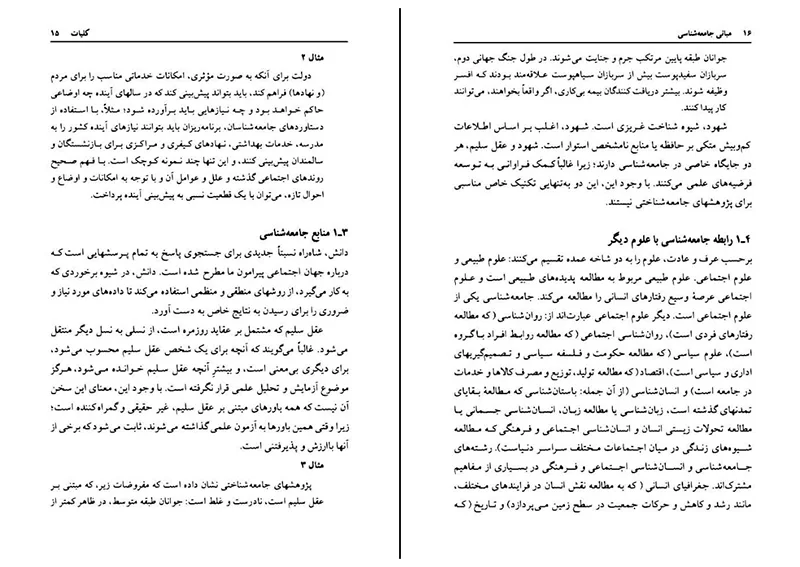 کلیات ۱۵
مثال ۲
دولت برای آنکه به صورت مؤثری، امکانات خدماتی مناسب را برای مردم
(و نهادها) فراهم کند، باید بتواند پیش‌بینی کند که در سالهای آینده چه اوضاعی
حاکم خواهد بود و چه نیازهایی باید برآورده شود؛ مثلاً، با استفاده از
دستاوردهای جامعه‌شناسان، برنامه‌ریزان باید بتوانند نیازهای آینده کشور را به
مدرسه، خدمات بهداشتی، نهادهای کیفری و مراکزی برای بازنشستگان و
سالمندان پیش‌بینی کنند، و این تنها چند نمونه کوچک است. با فهم صحیح
روندهای اجتماعی گذشته و علل و عوامل آن و با توجه به امکانات و اوضاع و
احوال تازه، می‌توان با یک قطعیت نسبی به پیش‌بینی آینده پرداخت.
۳ـ۱ منابع جامعه‌شناسی
دانش، شاه‌راه نسبتاً جدیدی برای جستجوی پاسخ به تمام پرسشهایی است که
درباره جهان اجتماعی پیرامون ما مطرح شده است. دانش، در شیوه برخوردی که
به کار می‌گیرد، از روشهای منطقی و منظمی استفاده می‌کند تا داده‌های مورد نیاز و
ضروری را برای رسیدن به نتایج خاص به دست آورد.
عقل سلیم که مشتمل بر عقاید روزمره است، از نسلی به نسل دیگر منتقل
می‌شود. غالباً می‌گویند که آنچه برای یک شخص عقل سلیم محسوب می‌شود،
برای دیگری بی‌معنی است، و بیشترِ آنچه عقل سلیم خوانده می‌شود، هرگز
موضوع آزمایش و تحلیل علمی قرار نگرفته است. با وجود این، معنای این سخن
آن نیست که همه باورهای مبتنی بر عقل سلیم، غیر حقیقی و گمراه‌کننده است؛
زیرا وقتی همین باورها به آزمون علمی گذاشته می‌شوند، ثابت می‌شود که برخی از
آنها باارزش و پذیرفتنی است.
مثال ۳
پژوهشهای جامعه‌شناختی نشان داده است که مفروضات زیر، که مبتنی بر
عقل سلیم است، نادرست و غلط است: جوانان طبقه متوسط، در ظاهر کمتر از
۱۶ مبانی جامعه‌شناسی
جوانان طبقه پایین مرتکب جرم و جنایت می‌شوند. در طول جنگ جهانی دوم،
سربازان سفیدپوست بیش از سربازان سیاهپوست علاقه‌مند بودند که افسر
وظیفه شوند. بیشتر دریافت کنندگان بیمه بی‌کاری، اگر واقعاً بخواهند، می‌توانند
کار پیدا کنند.
شهود، شیوه شناخت غریزی است. شهود، اغلب بر اساس اطلاعات
کم‌وبیش متکی بر حافظه یا منابع نامشخص استوار است. شهود و عقل سلیم، هر
دو جایگاه خاصی در جامعه‌شناسی دارند؛ زیرا غالباً کمک فراوانی به توسعه
فرضیه‌های علمی می‌کنند. با وجود این، این دو به‌تنهایی تکنیک خاص مناسبی
برای پژوهشهای جامعه‌شناختی نیستند.
۴ـ۱ رابطه جامعه‌شناسی با علوم دیگر
برحسب عرف و عادت، علوم را به دو شاخه عمده تقسیم می‌کنند: علوم طبیعی و
علوم اجتماعی. علوم طبیعی مربوط به مطالعه پدیده‌های طبیعی است و علوم
اجتماعی عرصهٔ وسیع رفتارهای انسانی را مطالعه می‌کند. جامعه‌شناسی یکی از
علوم اجتماعی است. دیگر علوم اجتماعی عبارت‌اند از: روان‌شناسی ( که مطالعه
رفتارهای فردی است)، روان‌شناسی اجتماعی ( که مطالعه روابط افراد با گروه
است)، علوم سیاسی ( که مطالعه حکومت و فلسفه سیاسی و تصمیم‌گیریهای
اداری و سیاسی است)، اقتصاد ( که مطالعه تولید، توزیع و مصرف کالاها و خدمات
در جامعه است) و انسان‌شناسی ( از آن جمله: باستان‌شناسی که مطالعهٔ بقایای
تمدنهای گذشته است، زبان‌شناسی یا مطالعه زبان، انسان‌شناسی جسمانی یا
مطالعه تحولات زیستی انسان و انسان‌شناسی اجتماعی و فرهنگی که مطالعه
شیوه‌های زندگی در میان اجتماعات مختلف سراسر دنیاست). رشته‌های
جامعه‌شناسی و انسان‌شناسی اجتماعی و فرهنگی در بسیاری از مفاهیم
مشترک‌اند. جغرافیای انسانی ( که به مطالعه نقش انسان در فرایندهای مختلف،
مانند رشد و کاهش و حرکات جمعیت در سطح زمین می‌پردازد) و تاریخ ( که